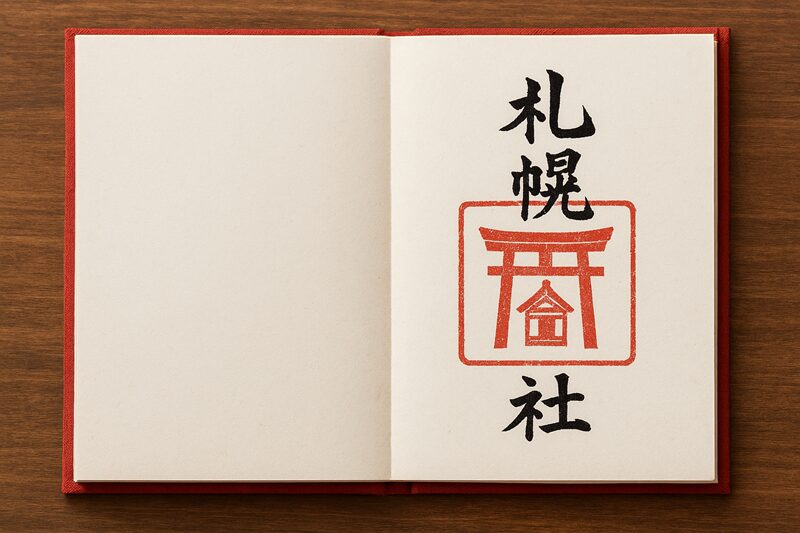 札幌
社